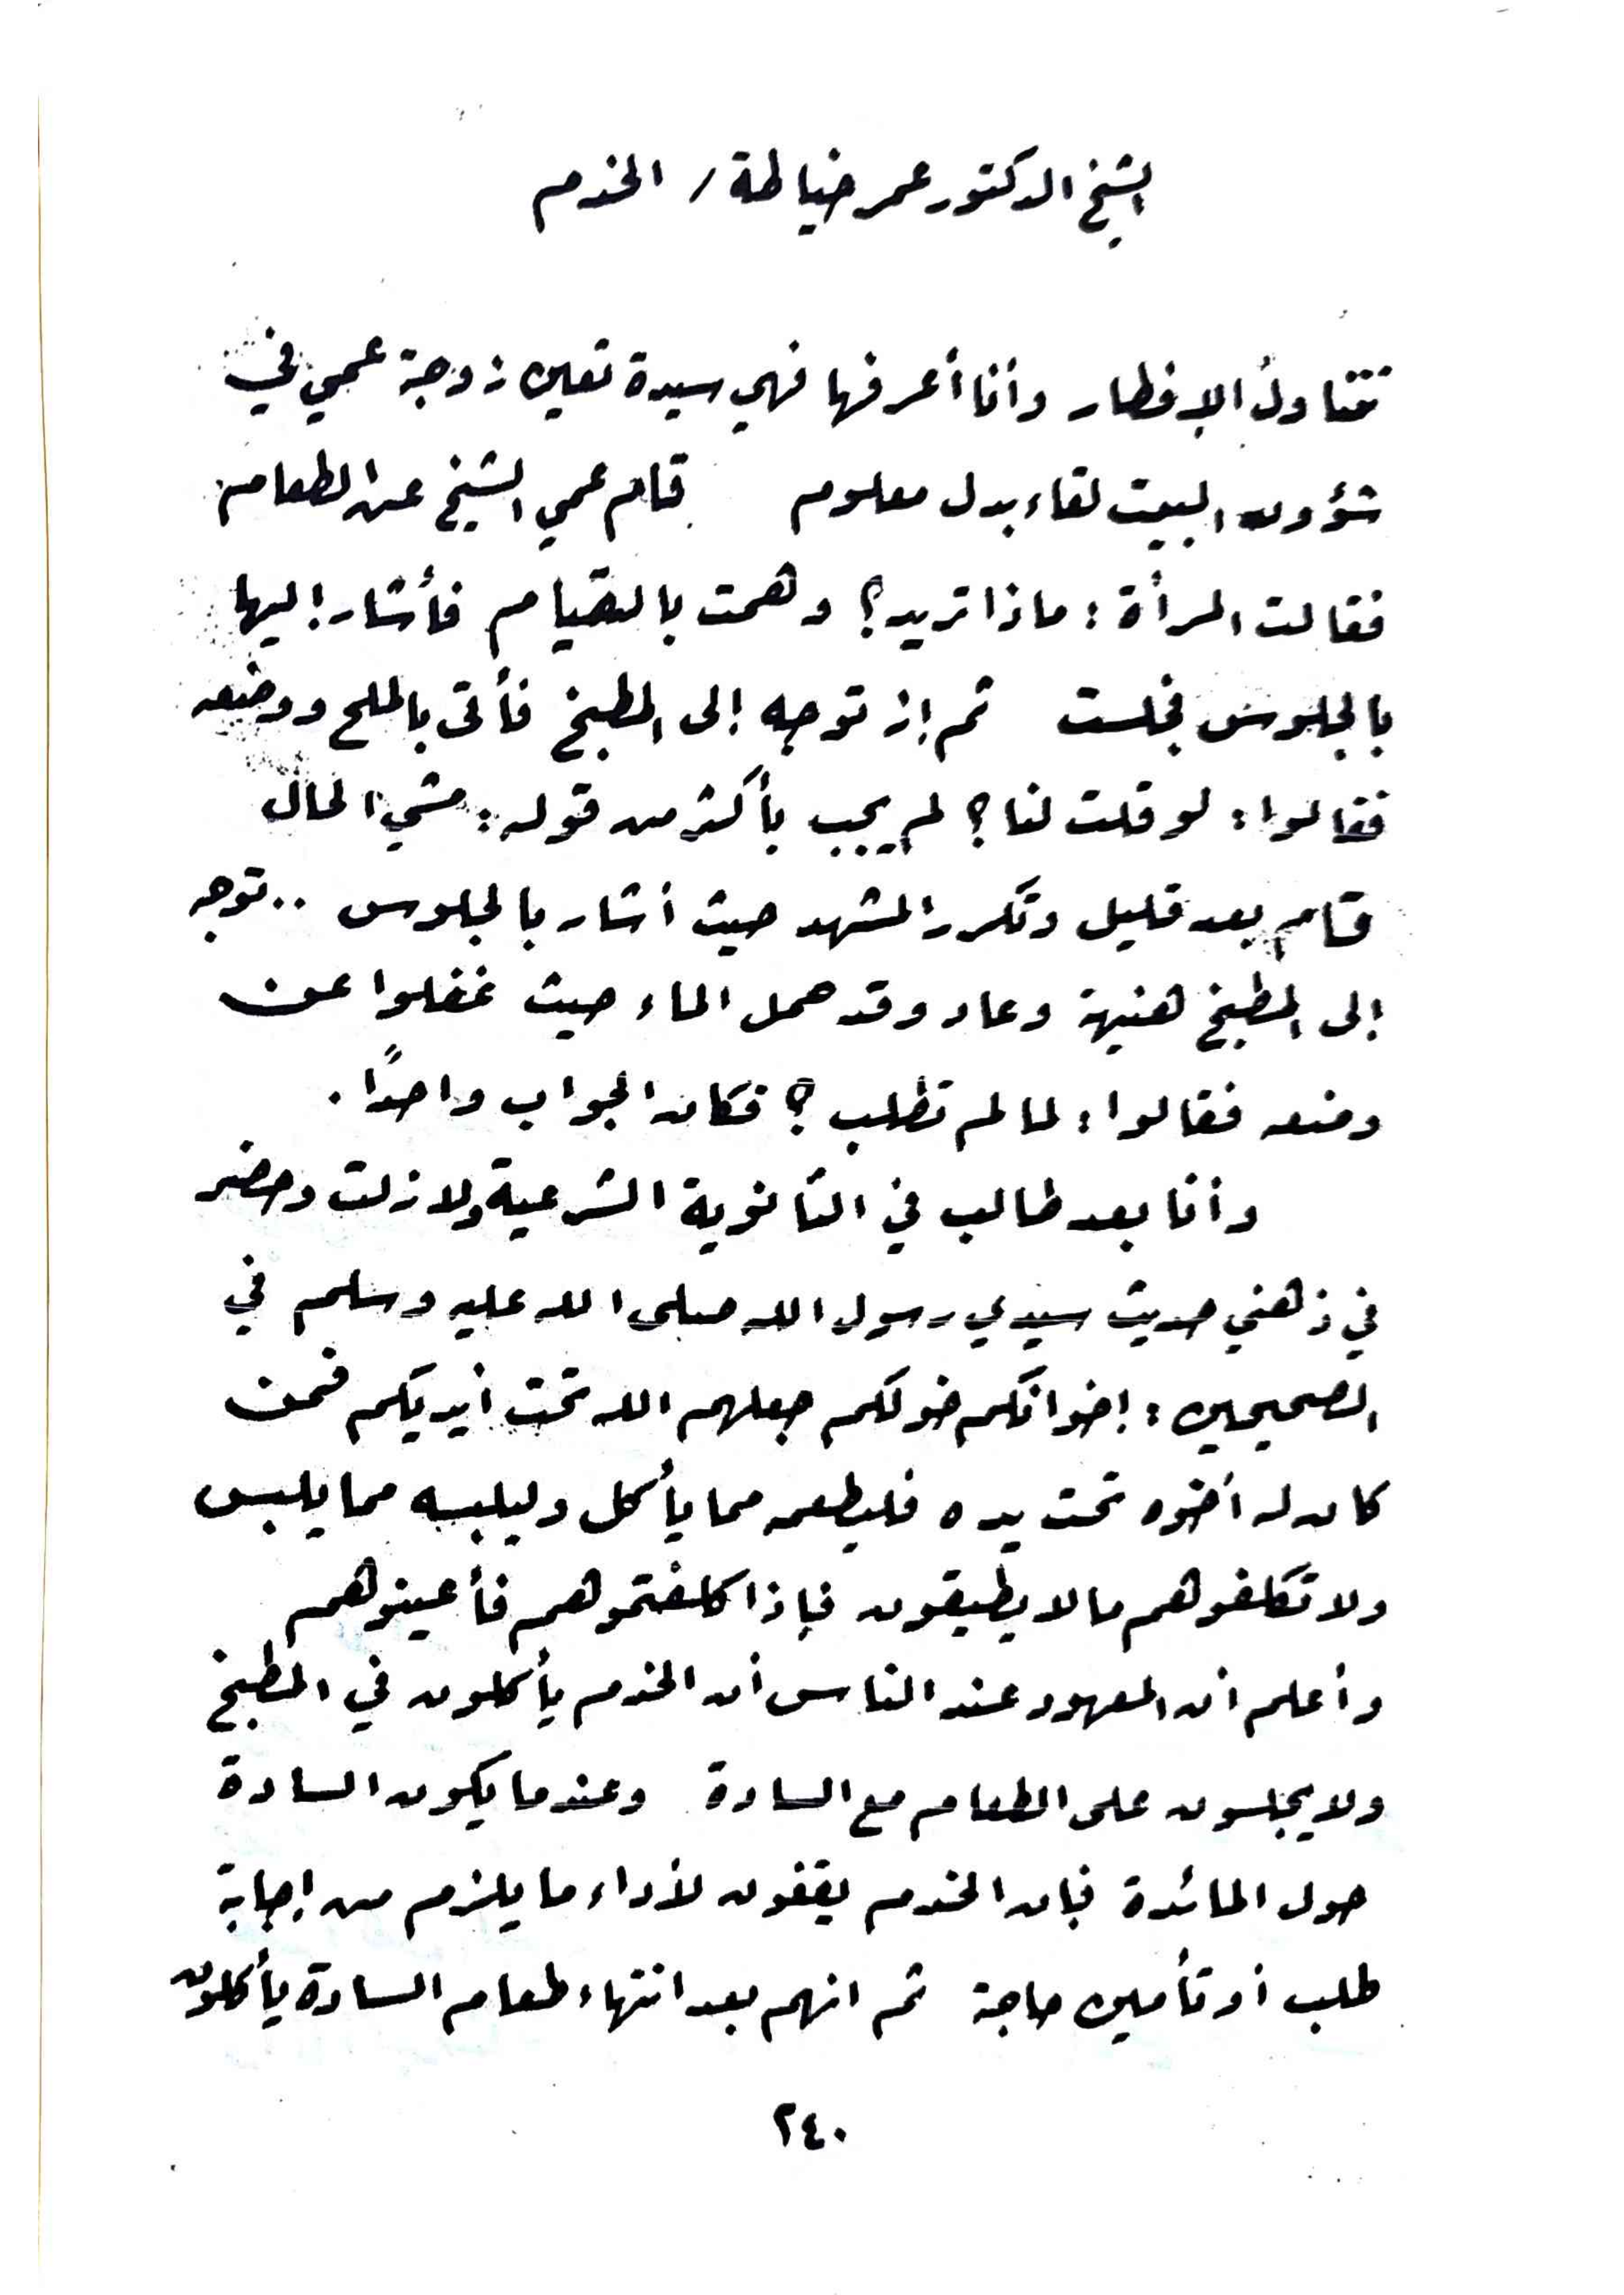 الشيخ الدكتور عمر خياطة / الخدم
تتناول الإفطار وأنا أعرفها فهي سيدة تعين زوجة عمي في
شؤون البيت لقاء بدل معلوم قام عمي الشيخ عن الطعام
فقالت المرأة : ماذا تريد؟ وهمت بالقيام فأشار إليها
بالجلوس فجلست ثم إذ توجه إلى المطبخ فأتى بالملح ووضعه
فقالوا : لو قلت لنا ؟ لم يجب بأكثر من قوله : مشي الحال
قام بعد قليل وتكرر المشهد حيث أشار بالجلوس .. توجه
إلى المطبخ هنيهة وعاد وقد حمل الماء حيث غفلوا عن
وضعه فقالوا : لما لم تطلب ؟ فكان الجواب واحدًا .
وأنا بعد طالب في الثانوية الشرعية ولا زلت وحضر
في ذهني حديث سيدي رسول الله صلى الله عليه وسلم في
الصحيحين : إخوانكم خولكم جعلهم الله تحت أيديكم فمن
كان له أخوه تحت يده فليطعمه مما يأكل وليلبسه مما يلبس
ولا تكلفوهم ما لا يطيقون فإذا كلفتموهم فأعينوهم
وأعلم أن المعهود عند الناس أن الخدم يأكلون في المطبخ
ولا يجلسون على الطعام مع السادة وعندما يكون السادة
حول المائدة فإن الخدم يقفون لأداء ما يلزم من إجابة
طلب أو تأمين حاجة ثم انهم بعد انتهاء طعام السادة يأكلون
٢٤٠